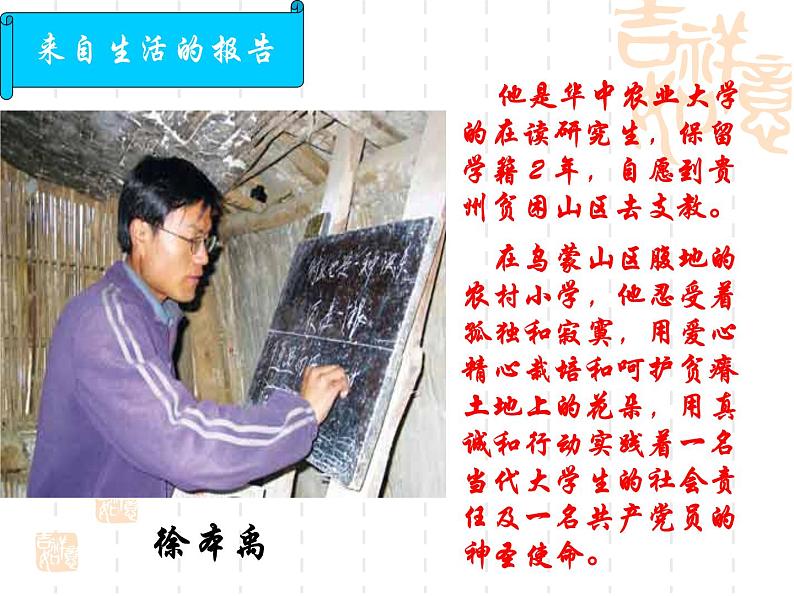 来自生活的报告
他是华中农业大学
的在读研究生，保留
学籍2年，自愿到贵
州贫困山区去支教。
在乌蒙山区腹地的
农村小学，他忍受着
孤独和寂寞，用爱心
精心栽培和呵护贫瘠
土地上的花朵，用真
诚和行动实践着一名
当代大学生的社会责
任及一名共产党员的
神圣使命。
徐本禹
吉祥如意
吉祥如意